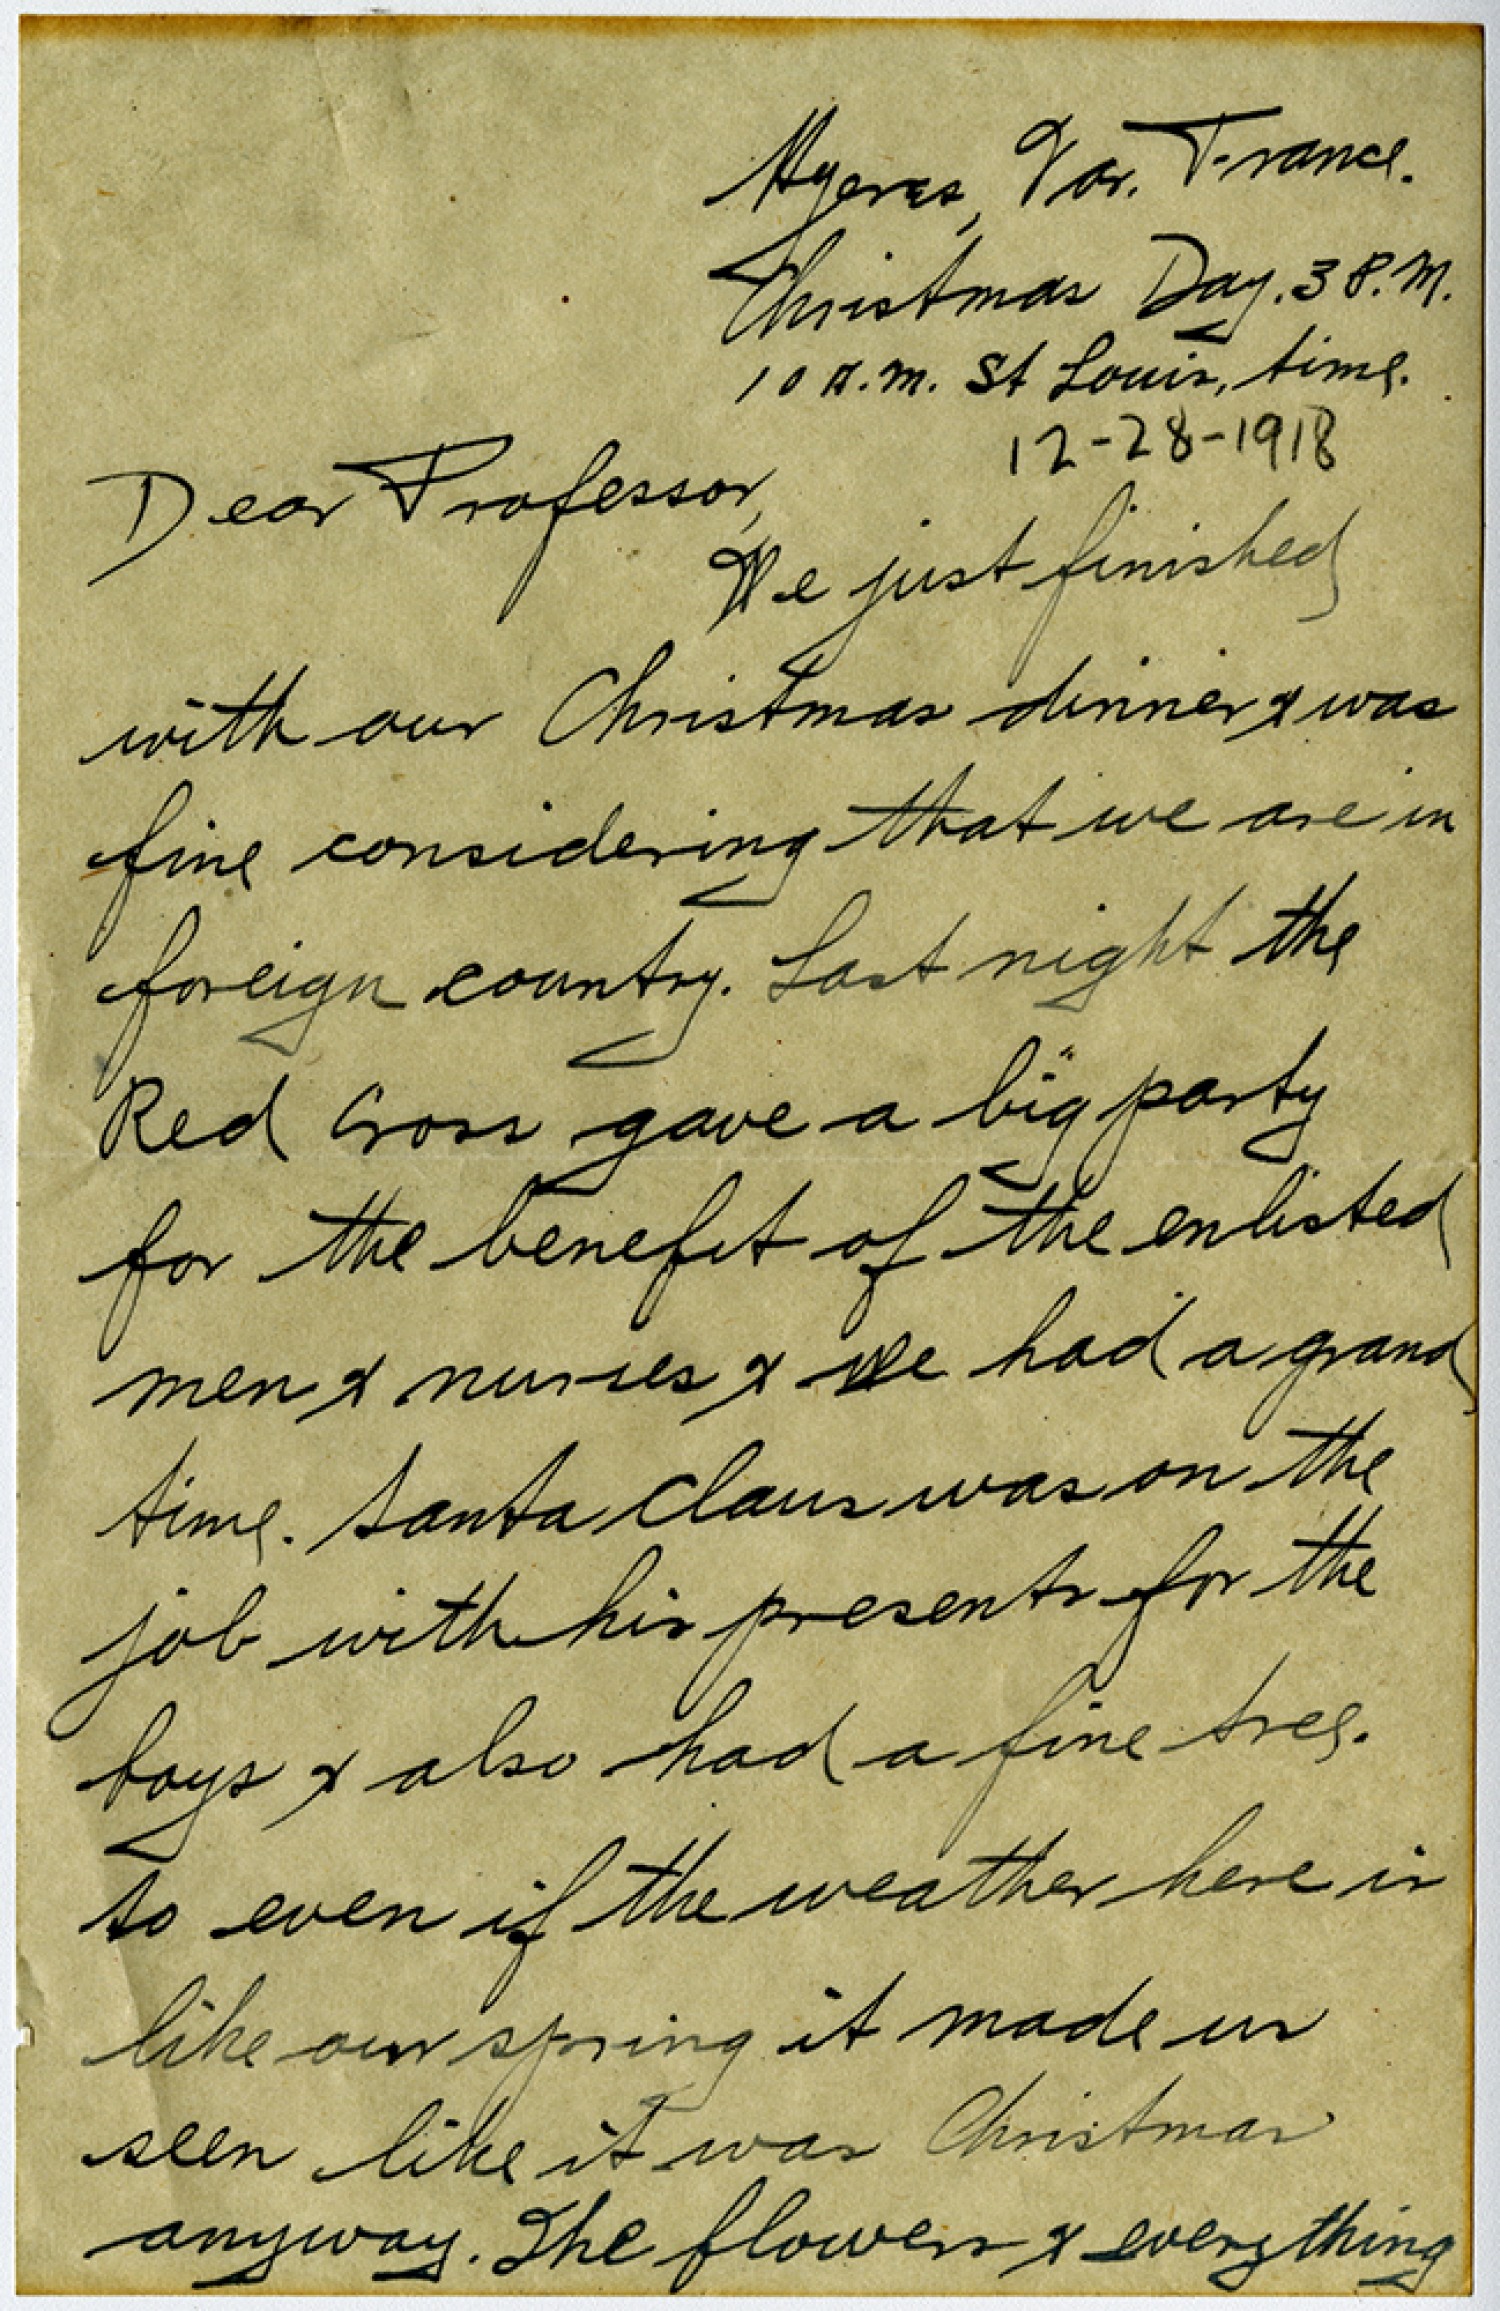 Hyeres, Var. France.
Christmas Day. 3 P.M.
10 A.M. St Louis, time.
12-28-1918
Dear Professor,
We just finished
with our Christmas dinner & was
fine considering that we are in
foreign country. Last night the
Red Cross gave a big party
for the benefit of the enlisted
men & nurses & we had a grand
time. Santa Claus was on the
job with his presents for the
boys & also had a fine tree.
So even if the weather here is
like our spring it made us
seen like it was Christmas
anyway. The flowers & everything